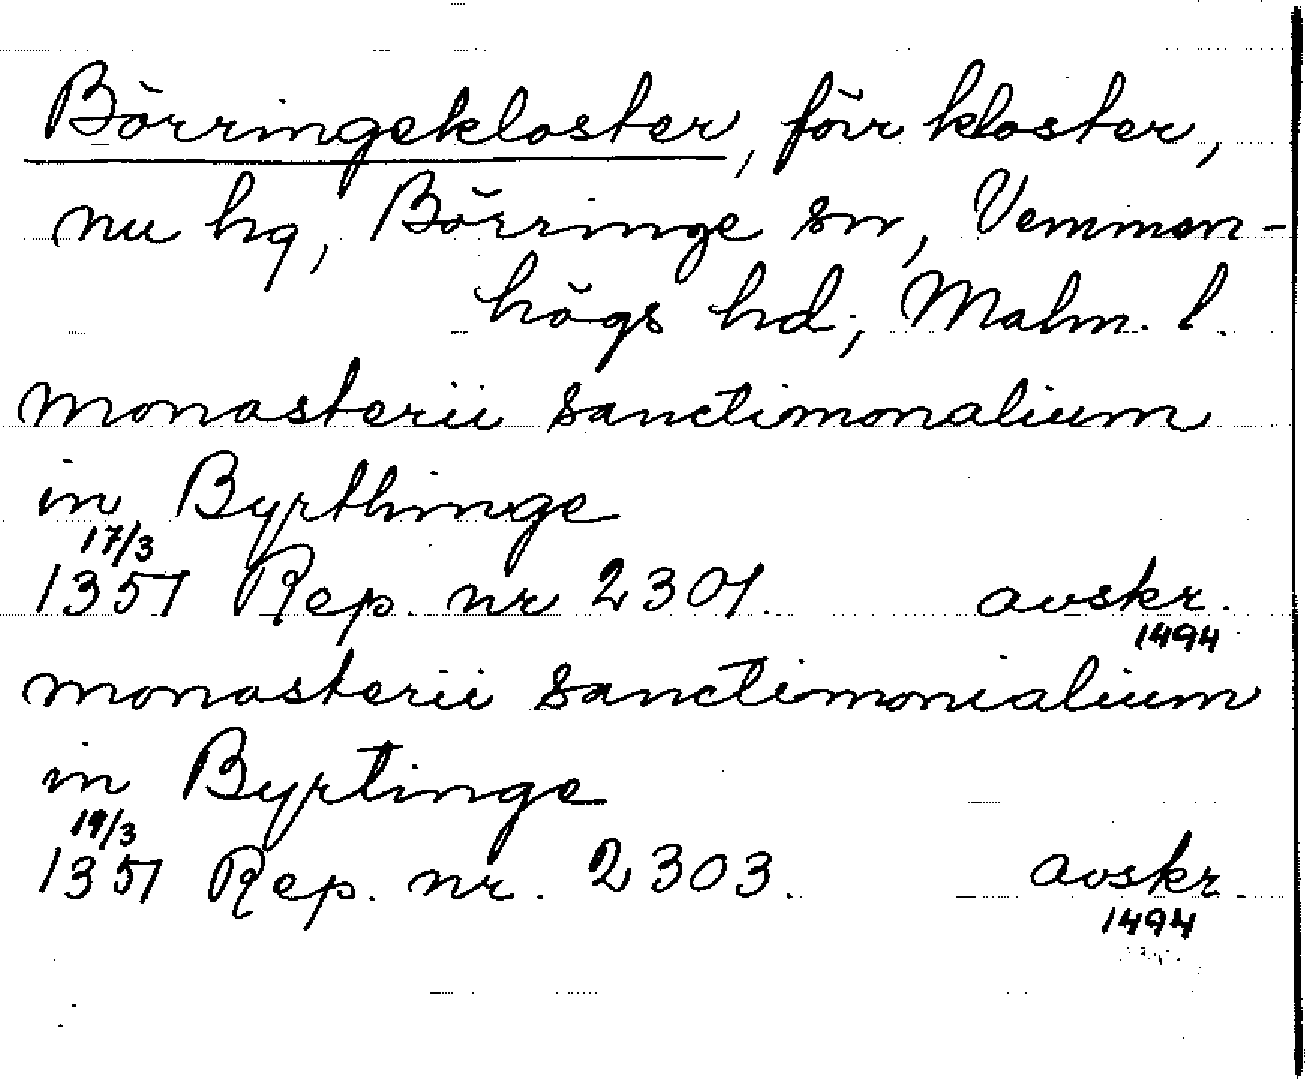 Börringekloster, förr kloster,
nu hg, Börringe sn, Vemmen-
högs hd, Malm. l.
monasterii sanctimonalium
in Byrthinge
17/3
1351 Rep. nr 2301. avskr.
1494
monasterii sanctimonialium
in Byrtinge
19/3
1351 Rep. nr. 2303. avskr.
1494